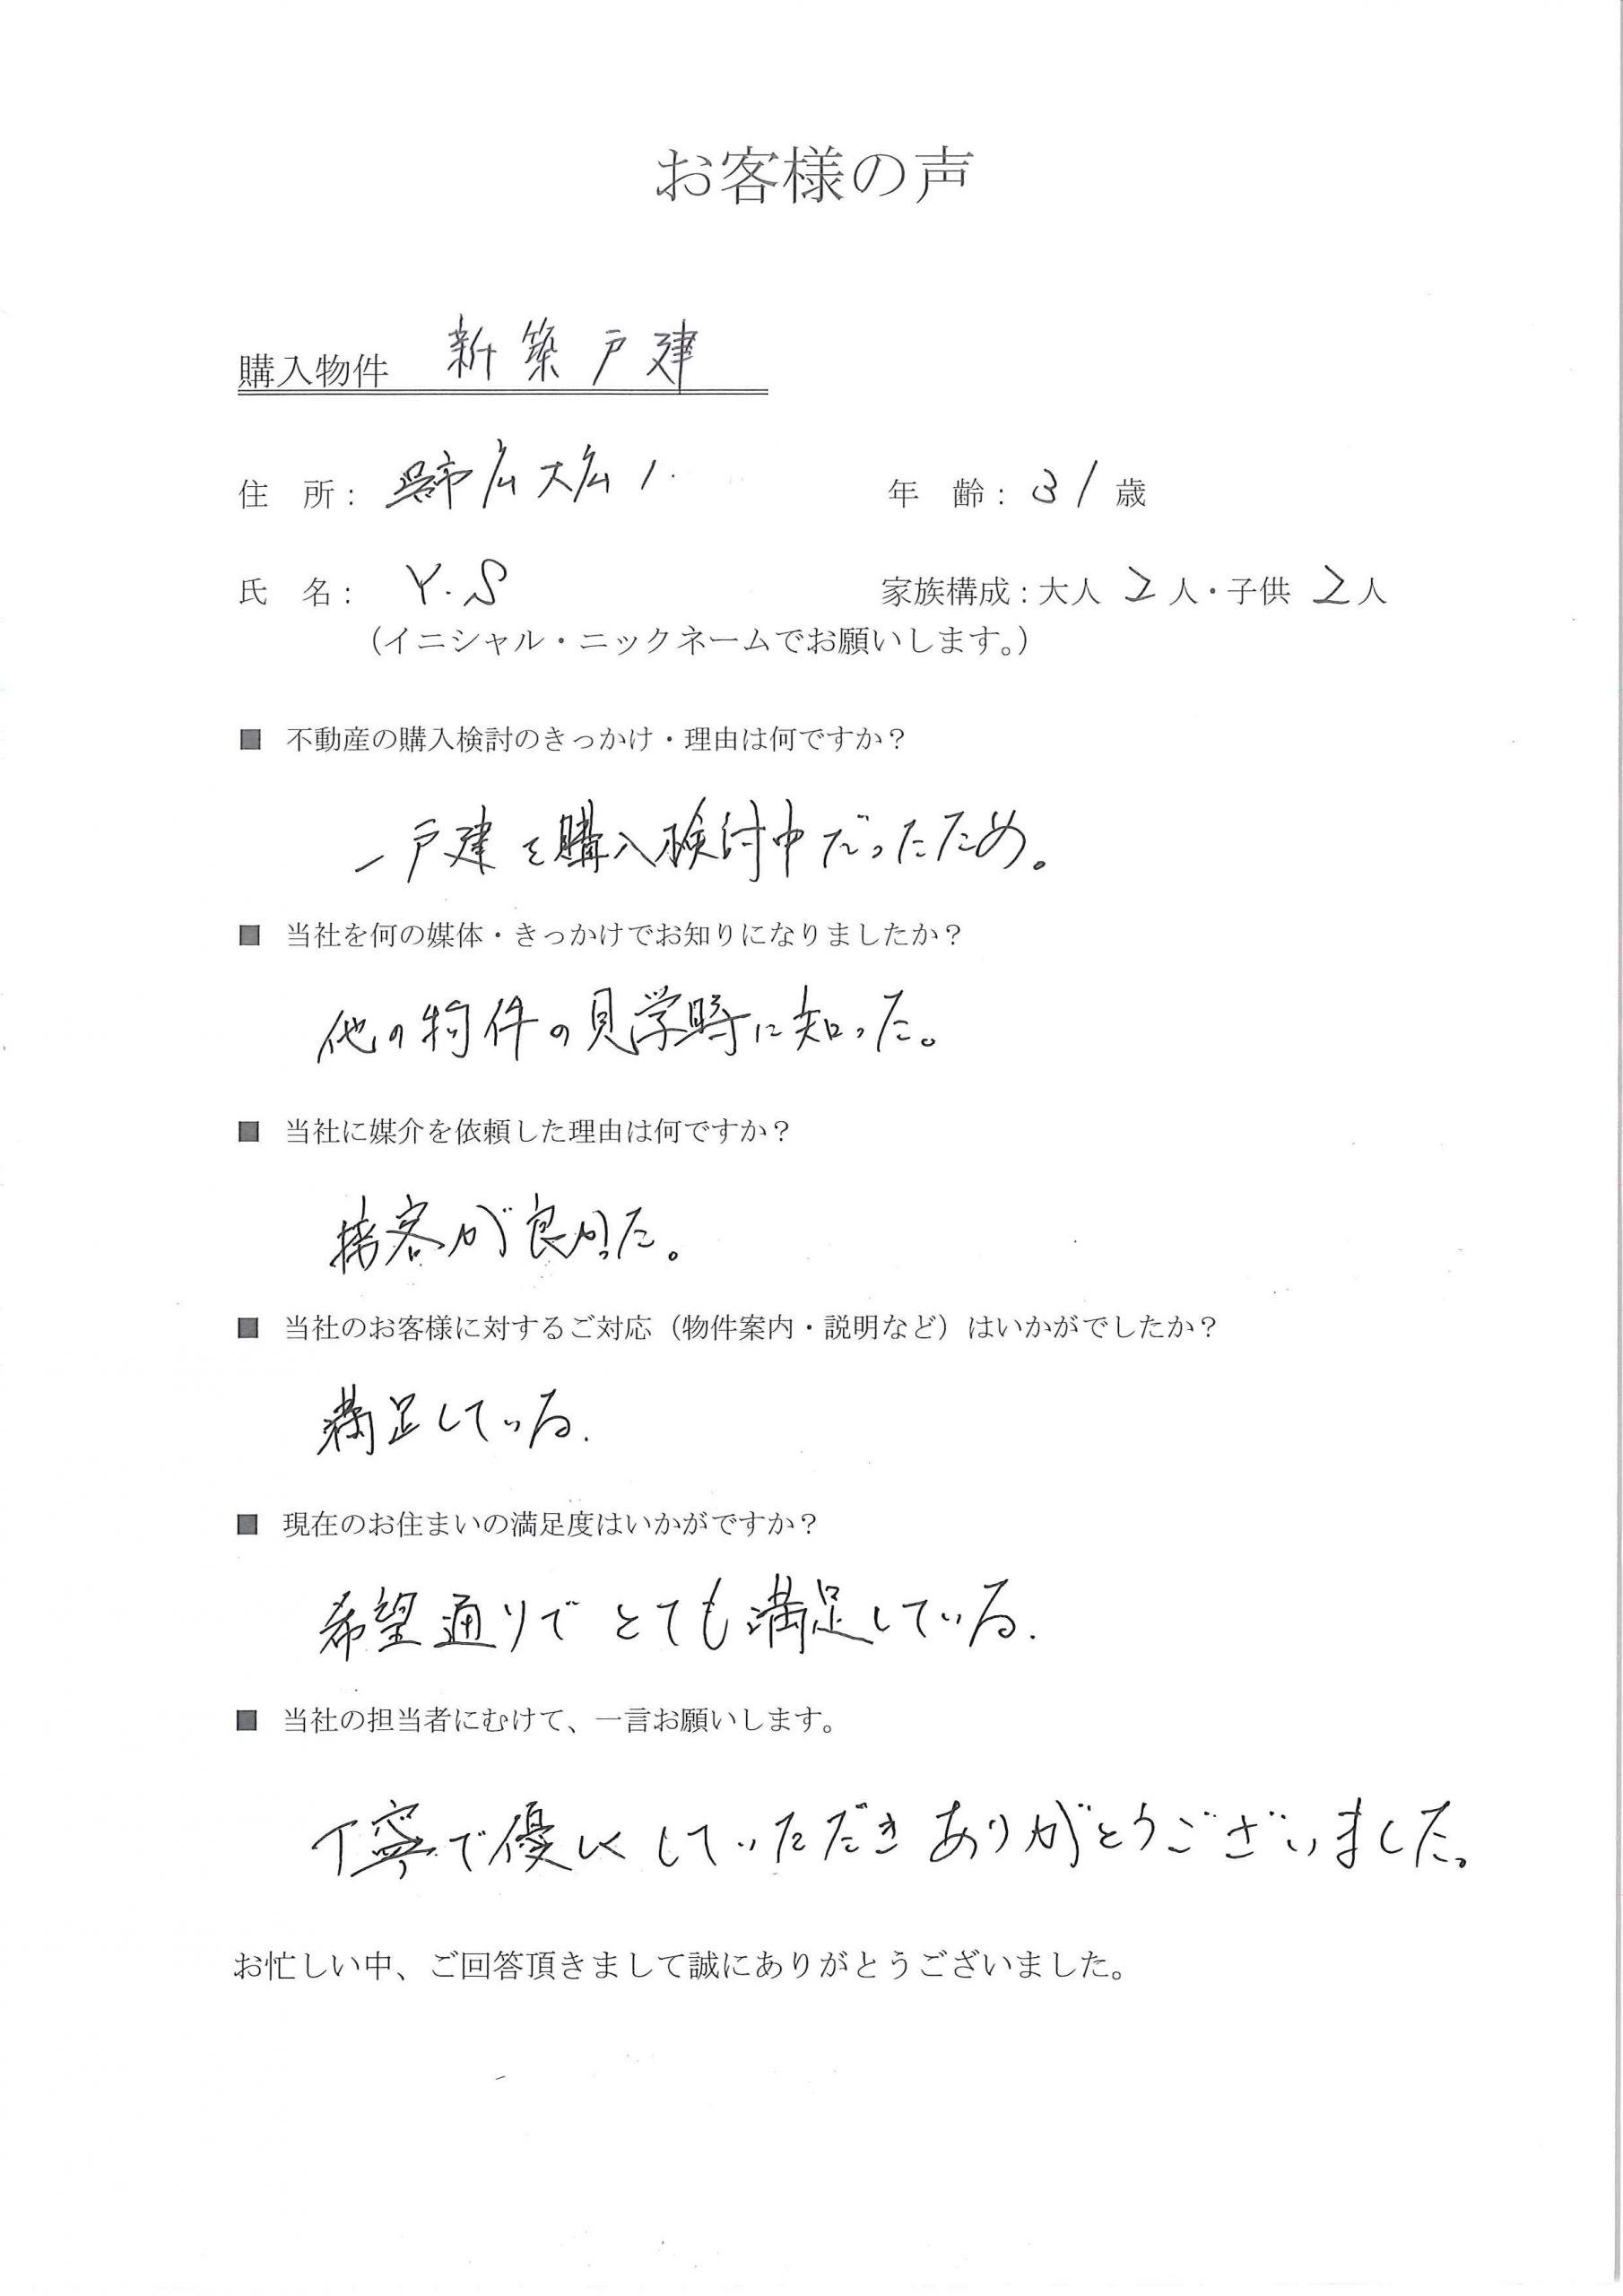 お客様の声
購入物件 新築戸建
住 所: 呉市広大広1. 年 齢: 31歳
氏 名: Y.S 家族構成:大人 2人・子供 2人
(イニシャル・ニックネームでお願いします。)
■ 不動産の購入検討のきっかけ・理由は何ですか?
一戸建を購入検討中だったため。
■ 当社を何の媒体・きっかけでお知りになりましたか?
他の物件の見学時に知った。
■ 当社に媒介を依頼した理由は何ですか?
接客が良かった。
■ 当社のお客様に対するご対応(物件案内・説明など)はいかがでしたか?
満足している.
■ 現在のお住まいの満足度はいかがですか?
希望通りでとても満足している.
■ 当社の担当者にむけて、一言お願いします。
丁寧で優しくしていただきありがとうございました。
お忙しい中、ご回答頂きまして誠にありがとうございました。